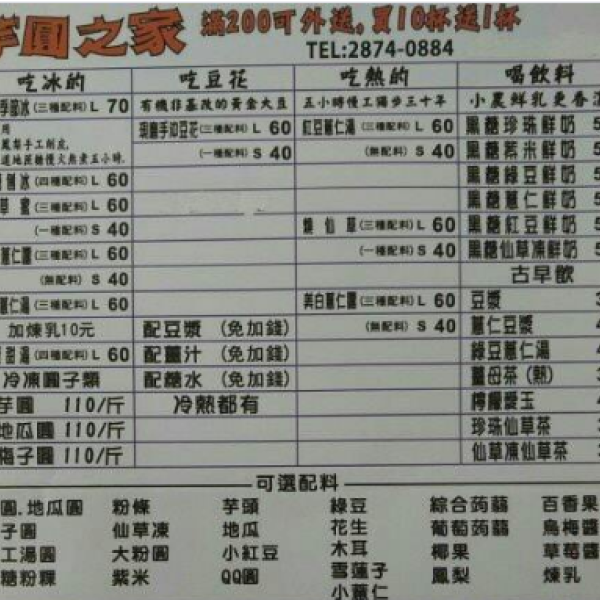 芋圓之家 滿200可外送,買10杯送1杯
TEL:2874-0884
吃冰的 吃豆花 吃熱的 喝飲料
季節冰(三種配料) L 70 有機非基改的黃金大豆 五小時慢工獨步三十年 小農鮮乳更香
用 現磨手沖豆花(三種配料) L 60 紅豆薏仁湯(三種配料) L 60 黑糖珍珠鮮奶
鳳梨手工削皮, (一種配料) S 40 (一種配料) S 40 黑糖紫米鮮奶
道地蔗糖慢火熬煮五小時. 黑糖綠豆鮮奶
冰(四種配料) L 60 黑糖薏仁鮮奶
草蜜(三種配料) L 60 燒仙草(三種配料) L 60 黑糖紅豆鮮奶
(一種配料) S 40 (一種配料) S 40 黑糖仙草凍鮮奶
薏仁圓(三種配料) L 60 古早飲
(無配料) S 40 豆漿
薏仁湯(三種配料) L 60 美白薏仁圓(三種配料) L 60 薏仁豆漿
加煉乳10元 配豆漿 (免加錢) (無配料) S 40 綠豆薏仁湯
甜湯(四種配料) L 60 配薑汁 (免加錢) 薑母茶(熱)
冷凍圓子類 配糖水 (免加錢) 檸檬愛玉
芋圓 110/斤 冷熱都有 珍珠仙草茶
地瓜圓 110/斤 仙草凍仙草茶
梅子圓 110/斤
可選配料
圓.地瓜圓 粉條 芋頭 綠豆 綜合蒟蒻 百香果
子圓 仙草凍 地瓜 花生 葡萄蒟蒻 烏梅醬
工湯圓 大粉圓 小紅豆 木耳 椰果 草莓醬
糖粉粿 紫米 QQ圓 雪蓮子 鳳梨 煉乳
小薏仁